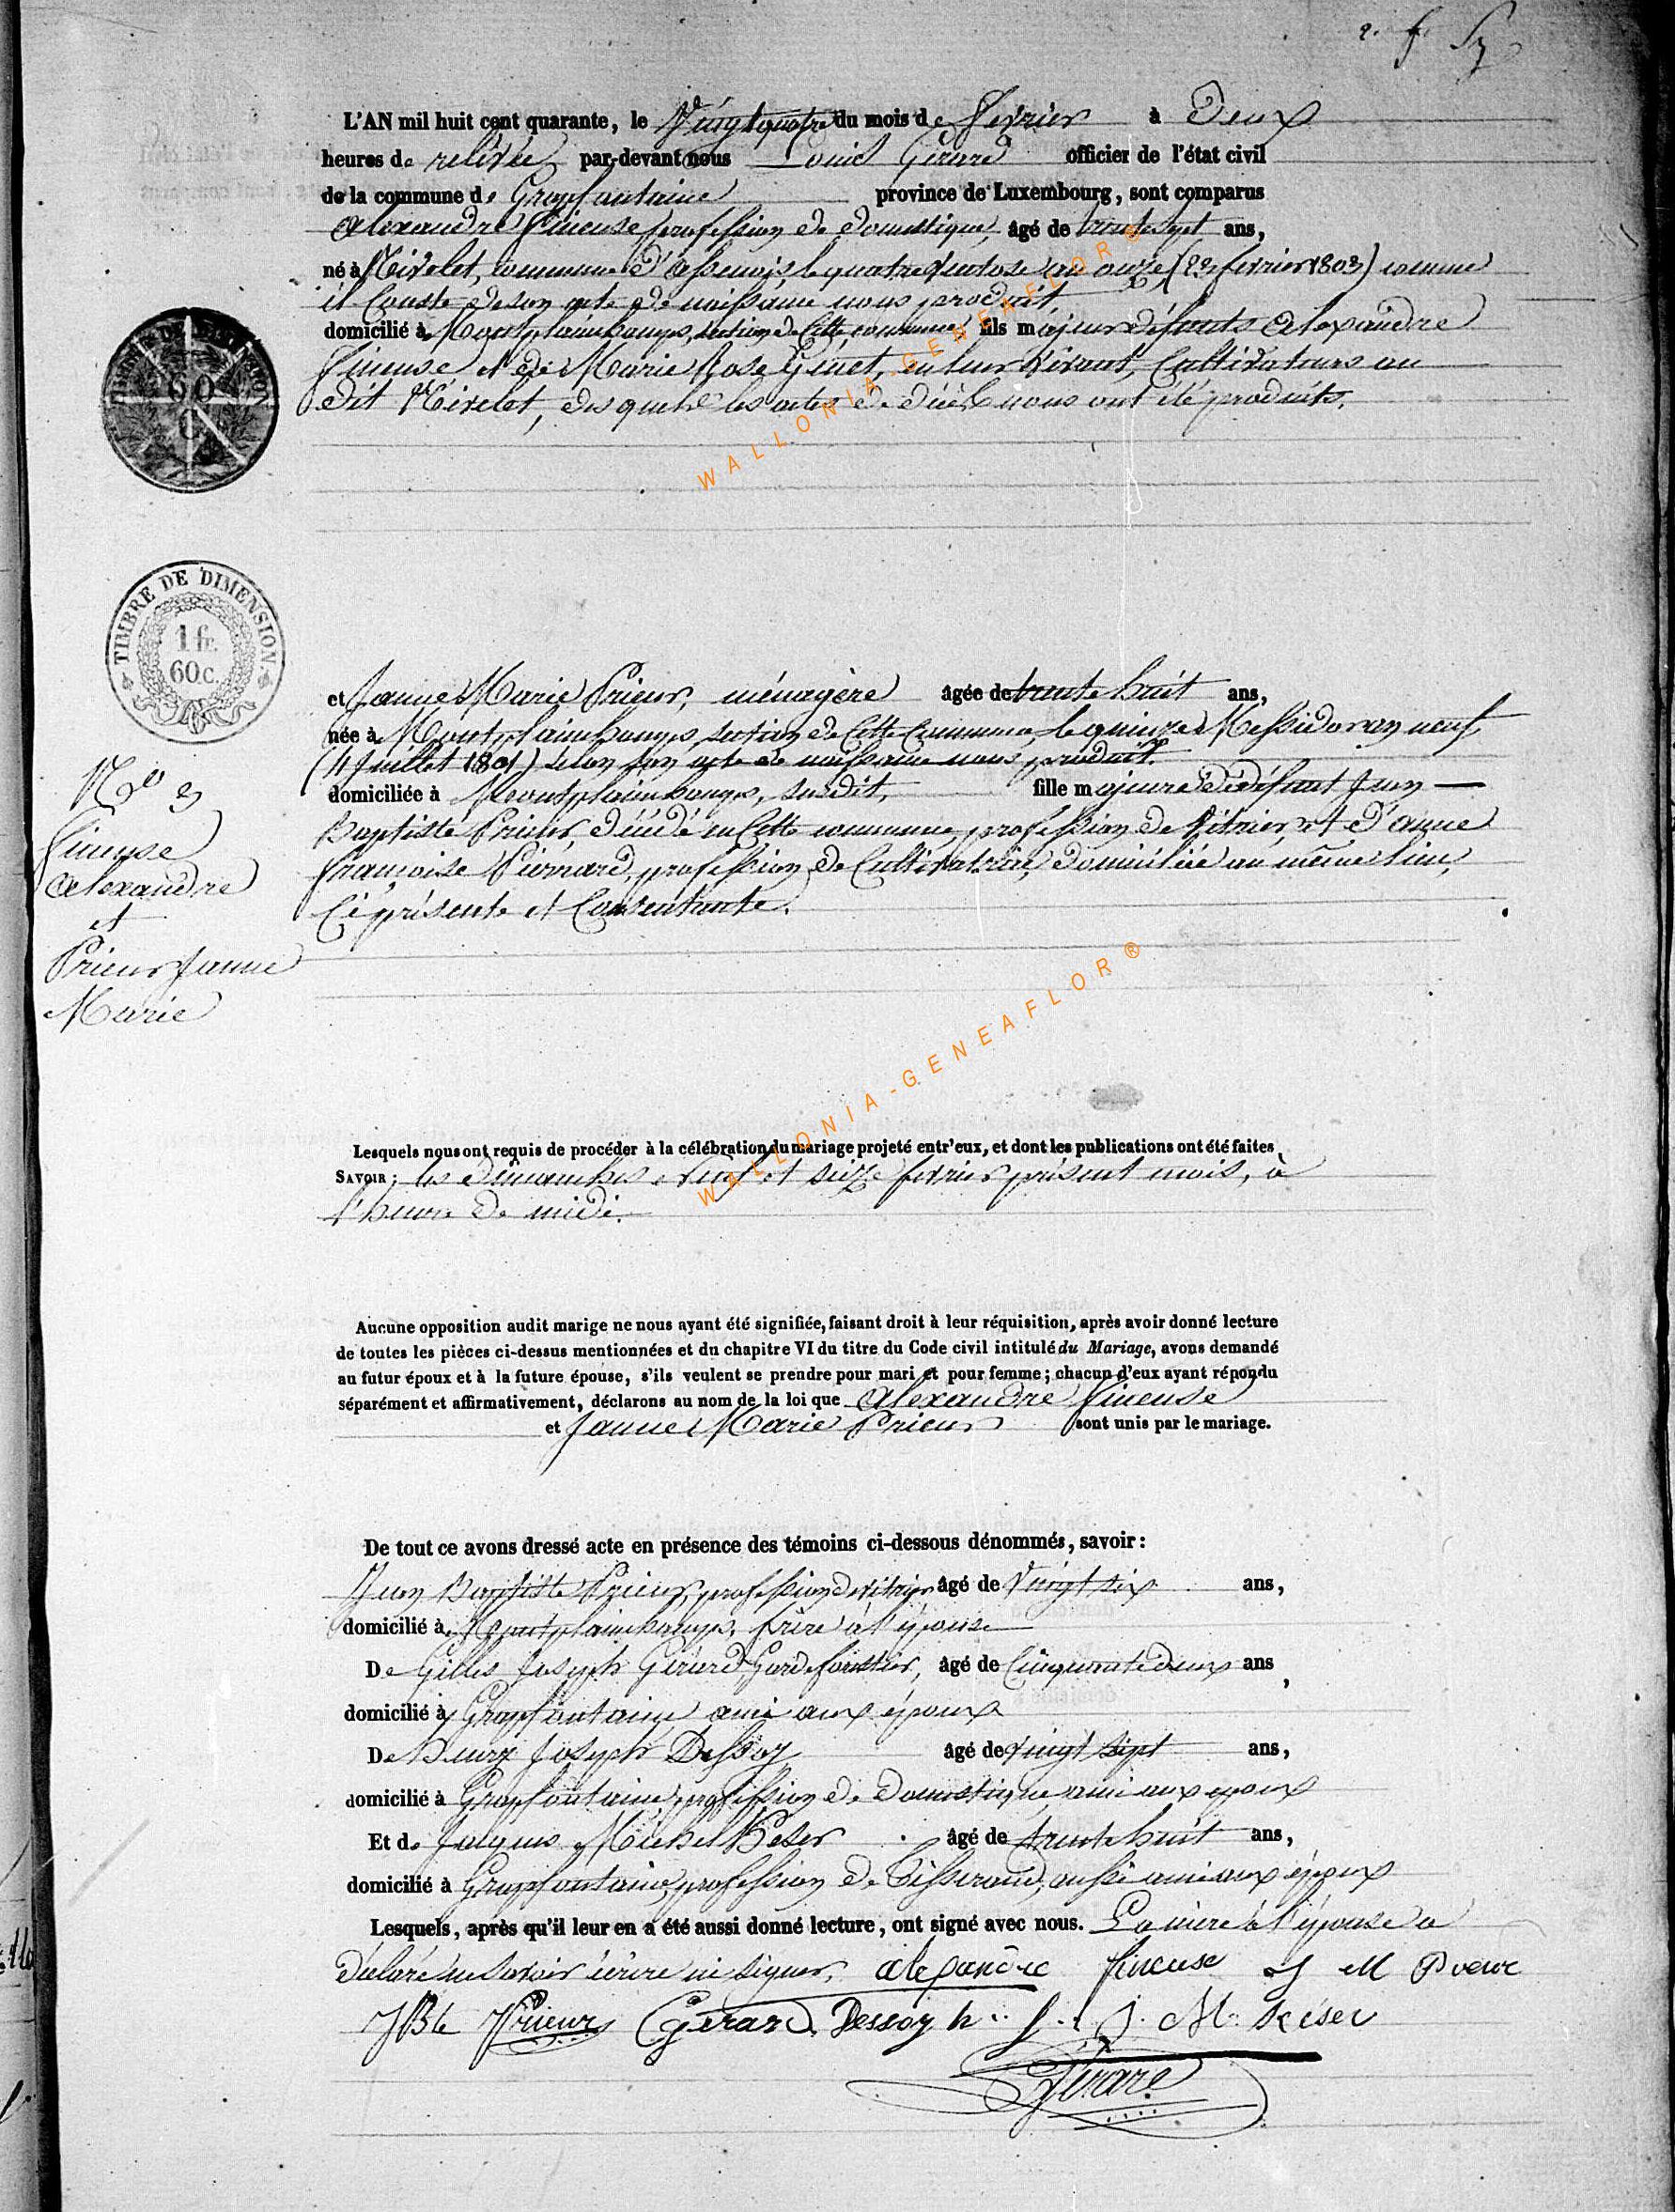 L'AN mil huit cent quarante, le Vingt quatre du mois de février à Deux
heures de relivée par-devant nous Louis Gérard officier de l'état civil
de la commune de Grapfontaine province de Luxembourg, sont comparus
Alexandre Fineuse profession de domestique, âgé de trente sept ans,
né à Nivelet, commune d'assenois, le quatre ventose an onze (23 fevrier 1803) comme
il Conste de son acte de naissance nous produit,
domicilié à Montplainchamps, section de Cette commune, fils majeur défunts Alexandre
Fineuse et de Marie Rose Ginet, en leur vivant, Cultivateurs au
dit Nivelet, desquels les actes de décès nous ont été produits.
TIMBRE DE DIMENSION
60
C
TIMBRE DE DIMENSION.
1 fr.
60 c.
et Janne Marie Prieur, ménagère âgée de trente huit ans,
née à Montplainchamps, section de Cette Commune, le quinze Messidor an neuf
(4 Juillet 1801) selon son acte de naissance nous produit.
domiciliée à Montplainchamps, susdit, fille majeure de défunt Jean
Baptiste Prieur, décédé en Cette commune, profession de Vitrier, et d'anne
françoise Piernard, profession de Cultivatrice, domiciliée au même lieu,
Ci présente et Consentante.
N° 3
Fineuse
Alexandre
et
Prieur Janne
Marie
Lesquels nous ont requis de procéder à la célébration du mariage projeté entr'eux, et dont les publications ont été faites
SAVOIR; les dimanches neuf et seize fevrier présent mois, à
l'heure de midi.
Aucune opposition audit marige ne nous ayant été signifiée, faisant droit à leur réquisition, après avoir donné lecture
de toutes les pièces ci-dessus mentionnées et du chapitre VI du titre du Code civil intitulé du Mariage, avons demandé
au futur époux et à la future épouse, s'ils veulent se prendre pour mari et pour femme; chacun d'eux ayant répondu
séparément et affirmativement, déclarons au nom de la loi que Alexandre Fineuse
et Janne Marie Prieur sont unis par le mariage.
De tout ce avons dressé acte en présence des témoins ci-dessous dénommés, savoir:
Jean Baptiste Prieur, profession de vitrier âgé de Vingt six ans,
domicilié à Montplainchamps, frère à l'épouse
De Gilles Joseph Gérard Garde forestier, âgé de Cinquante deux ans,
domicilié à Grapfontaine ami aux époux
De Henry Joseph Dessoy âgé de vingt sept ans,
domicilié à Grapfontaine, profession de Domestique, ami aux epoux
Et de Jacques Michel Keser âgé de trente huit ans,
domicilié à Grapfontaine, profession de Tisserand, aussi ami aux époux
Lesquels, après qu'il leur en a été aussi donné lecture, ont signé avec nous. La mère à l'épouse a
déclaré ne savoir écrire ni signer. alexandre fineuse J M Prieur
JBte Prieur Gerard. Dessoy h.. J.. J. M. Késer
Gérard
WALLONIA-GENEAFLOR ®
WALLONIA-GENEAFLOR ®